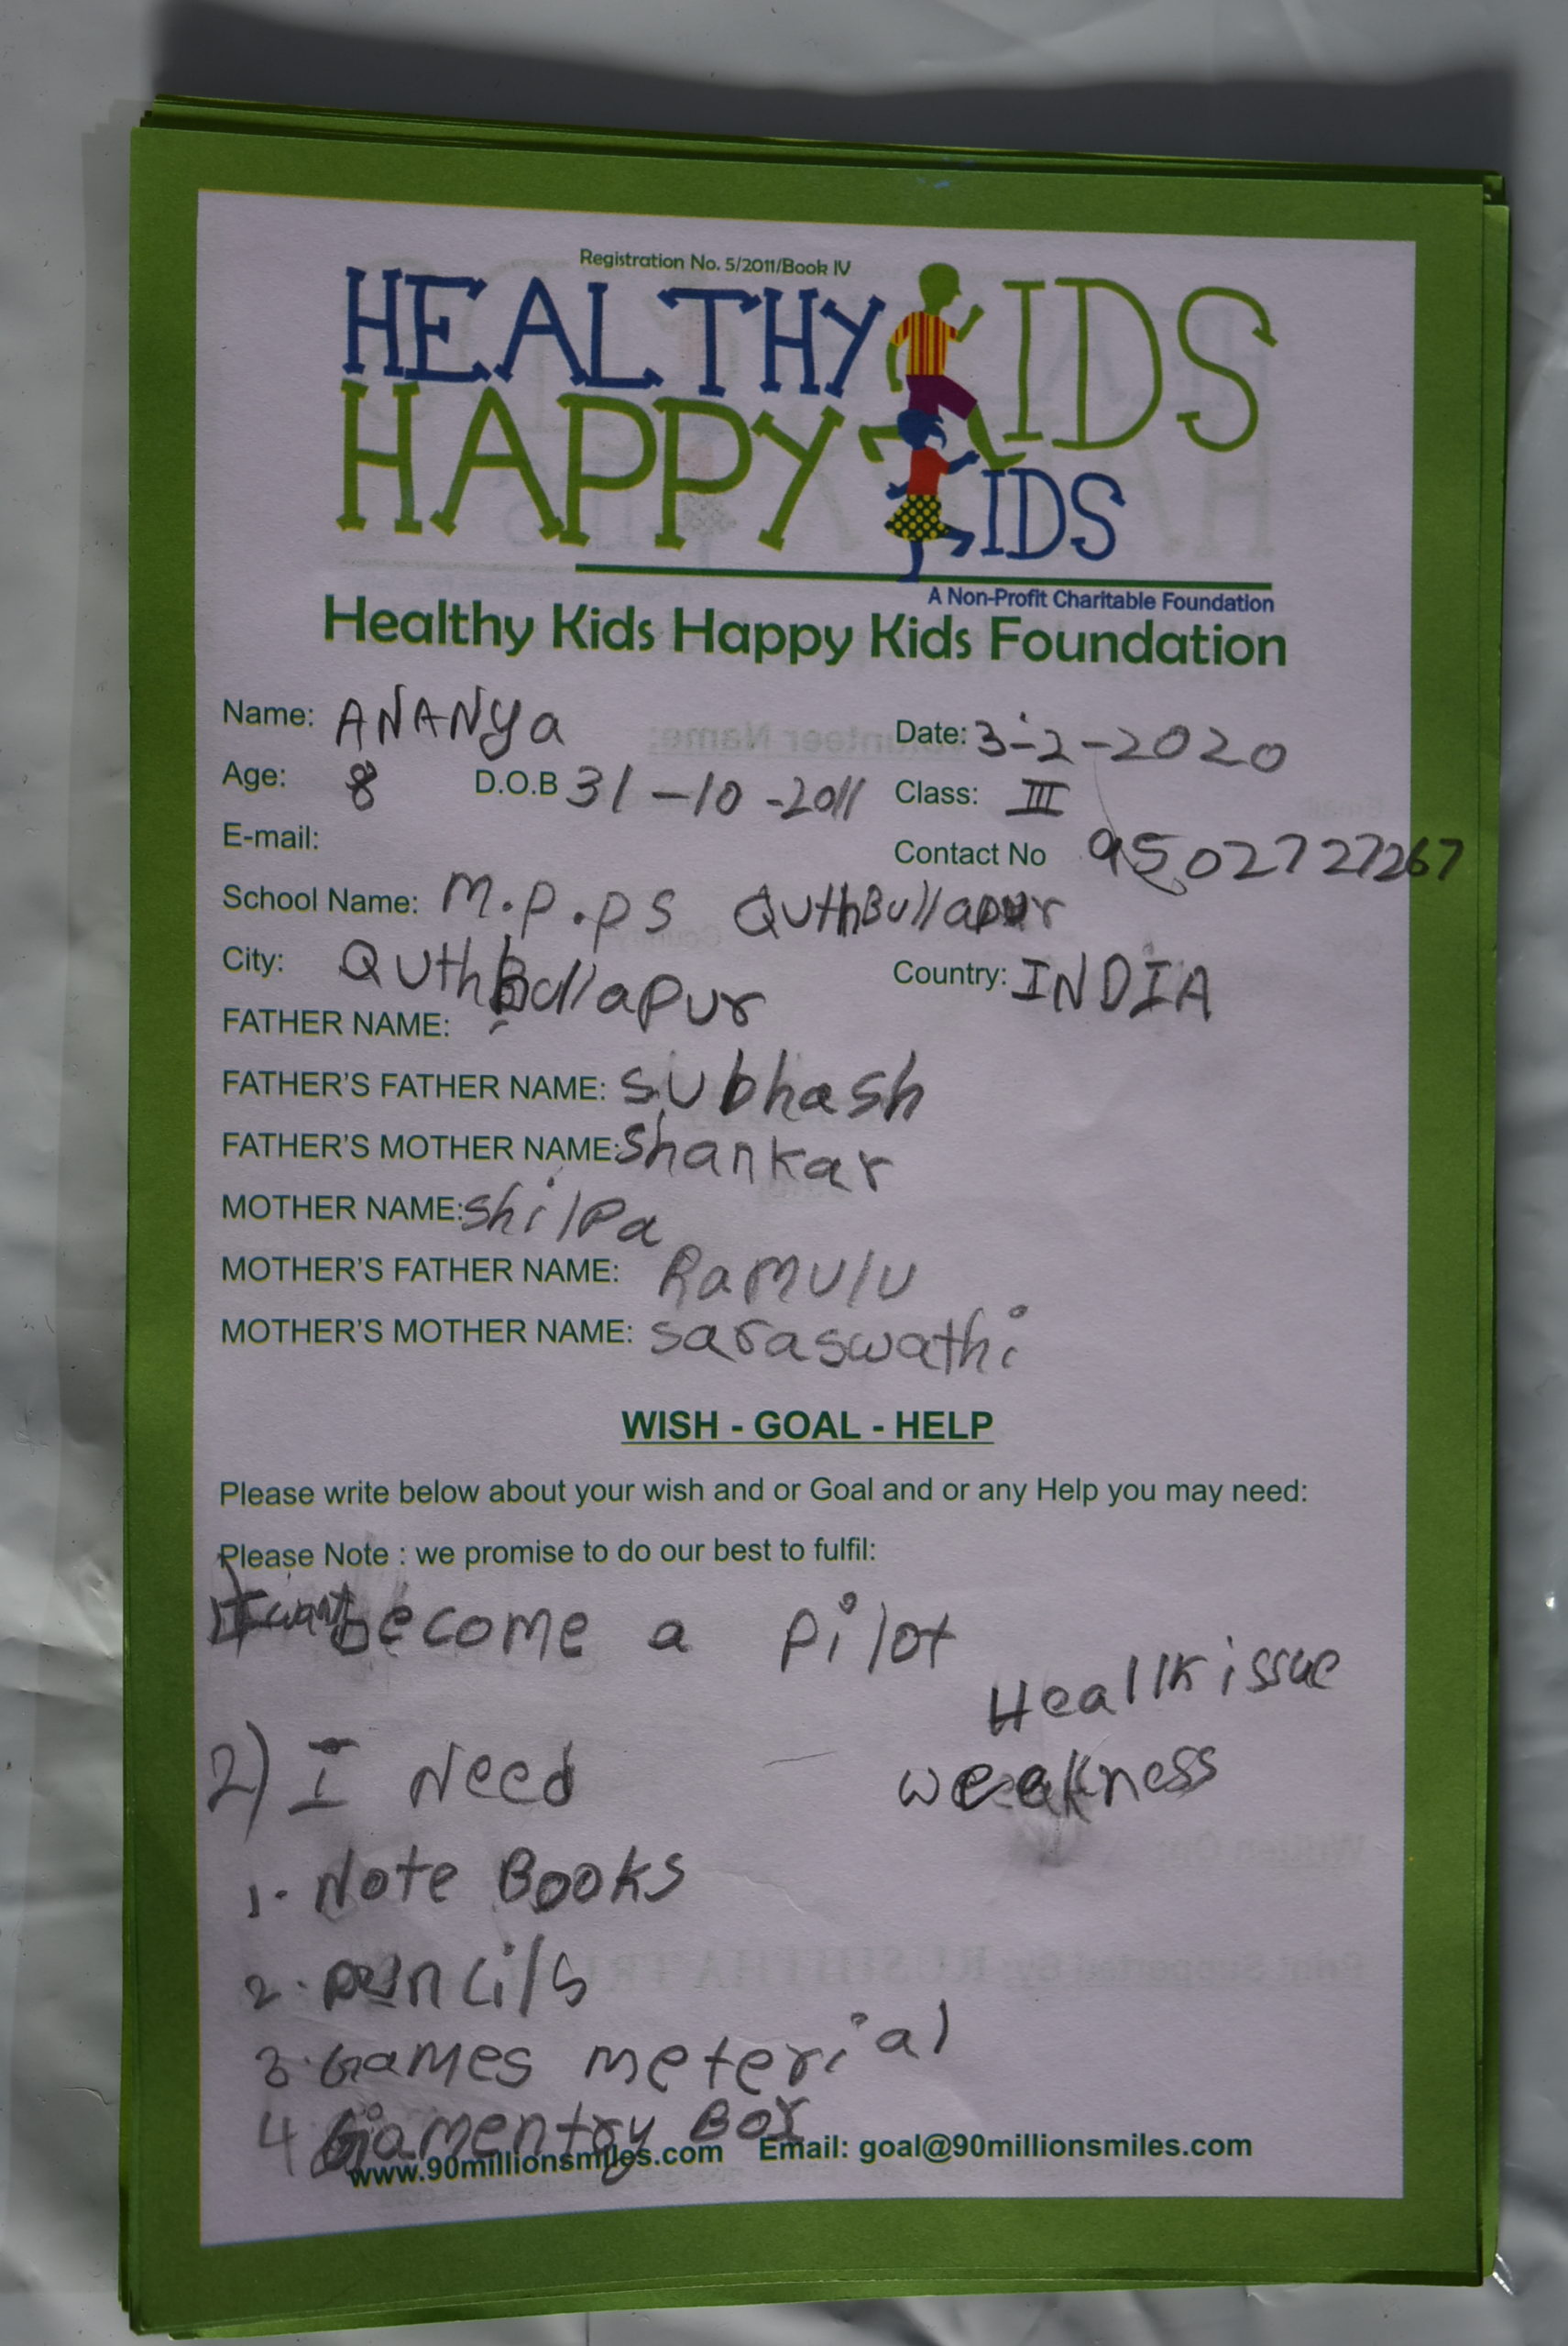 Registration No. 5/2011/Book IV
HEALTHY KIDS
HAPPY KIDS
A Non-Profit Charitable Foundation
Healthy Kids Happy Kids Foundation
Name: ANANya Date: 3-2-2020
Age: 8 D.O.B 31-10-2011 Class: III
E-mail: Contact No 9502727267
School Name: M.P.PS QUthBullapur
City: QUthbullapur Country: INDIA
FATHER NAME:
FATHER'S FATHER NAME: Subhash
FATHER'S MOTHER NAME: Shankar
MOTHER NAME: ShilPa
MOTHER'S FATHER NAME: RaMulu
MOTHER'S MOTHER NAME: saraswathi
WISH - GOAL - HELP
Please write below about your wish and or Goal and or any Help you may need:
Please Note : we promise to do our best to fulfil:
I want become a Pilot
Heallk issue
2) I Need weakness
1. Note Books
2. pencils
3. Games meterial
4 Giamentry Box
www.90millionsmiles.com Email: goal@90millionsmiles.com